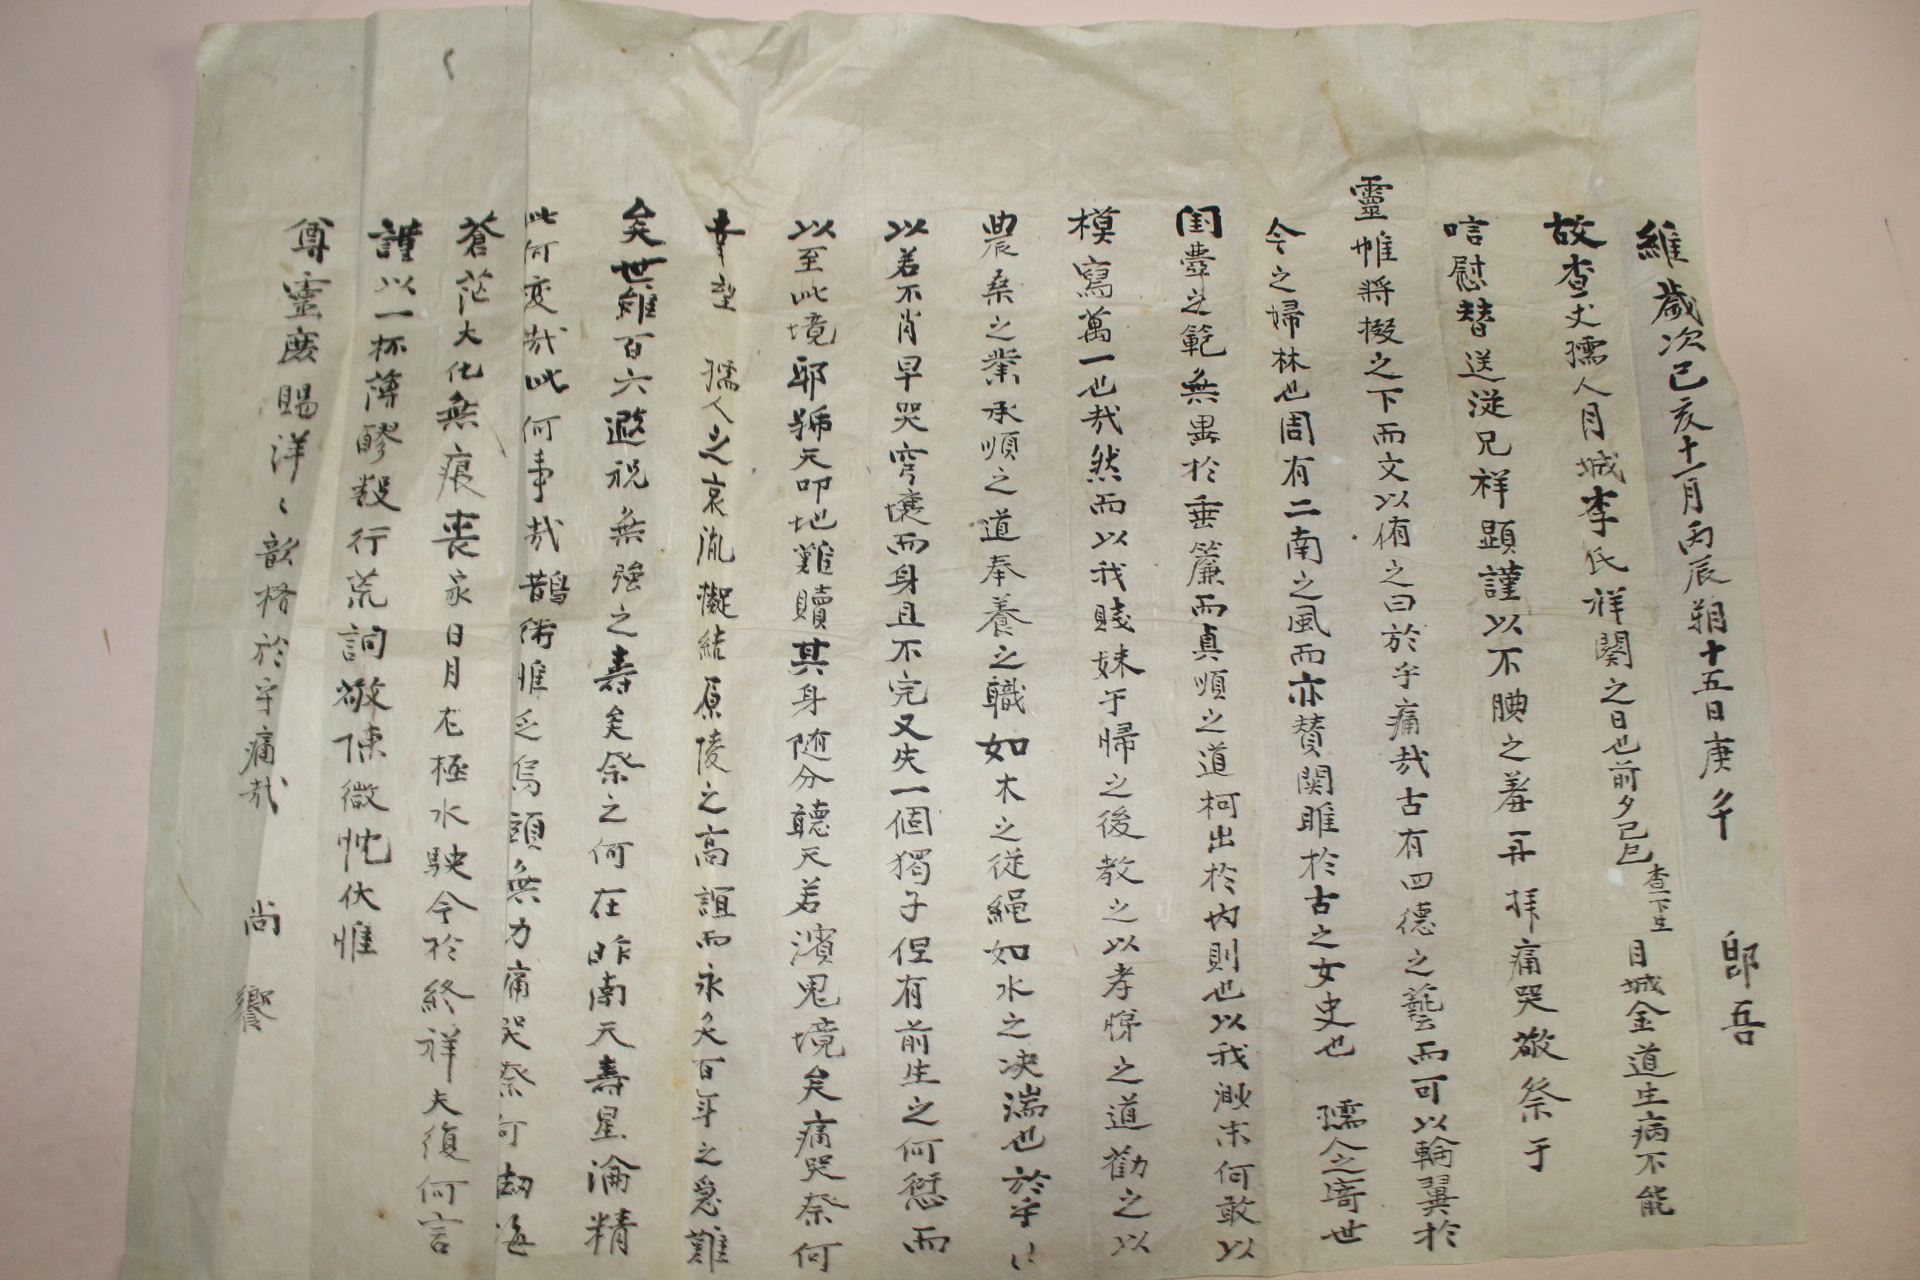 卽吾
維歲次己亥十一月丙辰朔十五日庚午
故査丈孺人月城李氏祥闋之日也前夕己巳査下生月城金道生病不能
唁慰替送從兄祥顕謹以不腆之羞再拜痛哭敬祭于
靈帷將掇之下而文以侑之曰於乎痛哉古有四德之藝而可以輪翼於
今之婦林也周有二南之風而亦賛関雎於古之女史也 孺人之寄世
閨壼之範無畏於垂簾而眞順之道柯出於內則也以我渺末何敢以
模寫萬一也哉然而以我賤妹于歸之後教之以孝悌之道勸之以
農桑之業承順之道奉養之職如木之從繩如水之决湍也於乎〻
以若不肖早哭穹壤而身且不完又失一個獨子但有前生之何愆而
以至此境耶號天叩地難贖其身隨分聽天若濱鬼境矣痛哭祭何
幸 孺人之哀胤凝結原陵之高誼而永矣百年之急難
矣世雖百六遐祝無强之壽矣祭之何在昨南天壽星淪精
此何变哉此何事哉鵲術惟乏烏頭無力痛哭祭何劫海
蒼茫大化無痕喪家日月尨極水駛今於終祥夫復何言
謹以一杯薄醪殽行荒詞敬陳微忱伏惟
尊靈庶賜洋〻歆格於乎痛哉 尚 饗